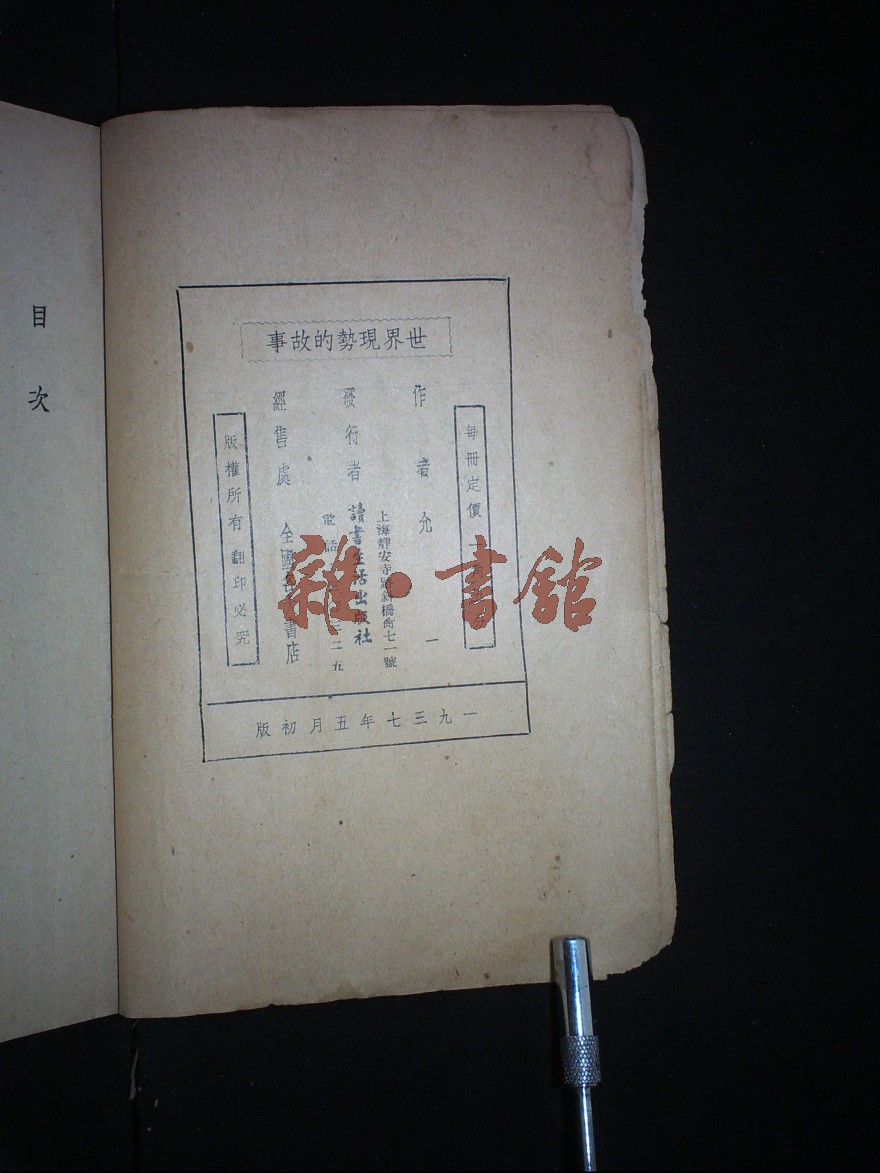 世界現勢的故事
每冊定價
作者 允一
上海靜安寺路斜橋衖七一號
發行者 讀書生活出版社
電話 三二五
經售處 全國各大書店
版權所有 翻印必究
一九三七年五月初版
目次
雜·書館